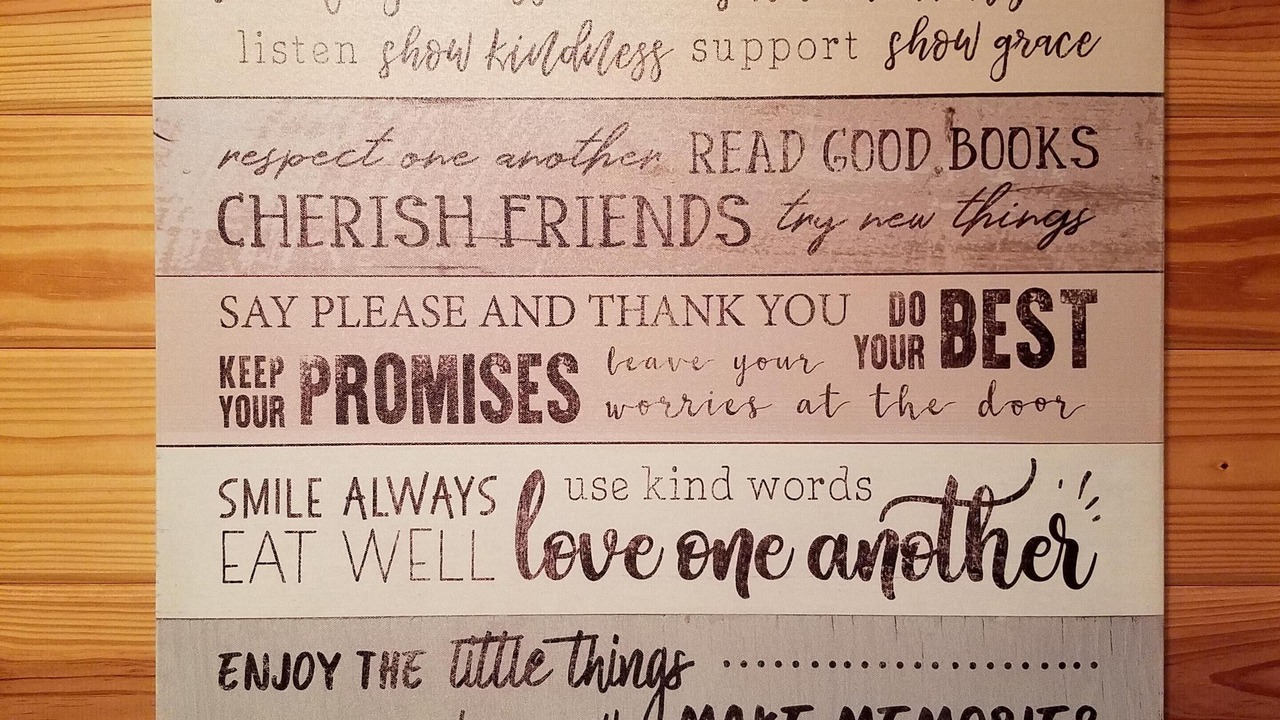 listen show kindness support show grace
respect one another READ GOOD BOOKS
CHERISH FRIENDS try new things
SAY PLEASE AND THANK YOU DO YOUR BEST
KEEP YOUR PROMISES leave your worries at the door
SMILE ALWAYS use kind words
EAT WELL love one another
ENJOY THE little things
MAKE MEMORIES